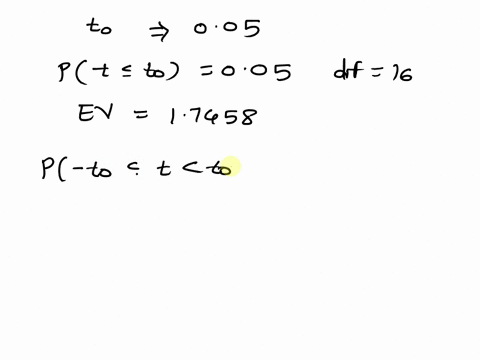 t₀ ⇒ 0.05
P(t ≤ t₀) = 0.05 df = 16
EV = 1.7458
P(-t₀ < t < t₀